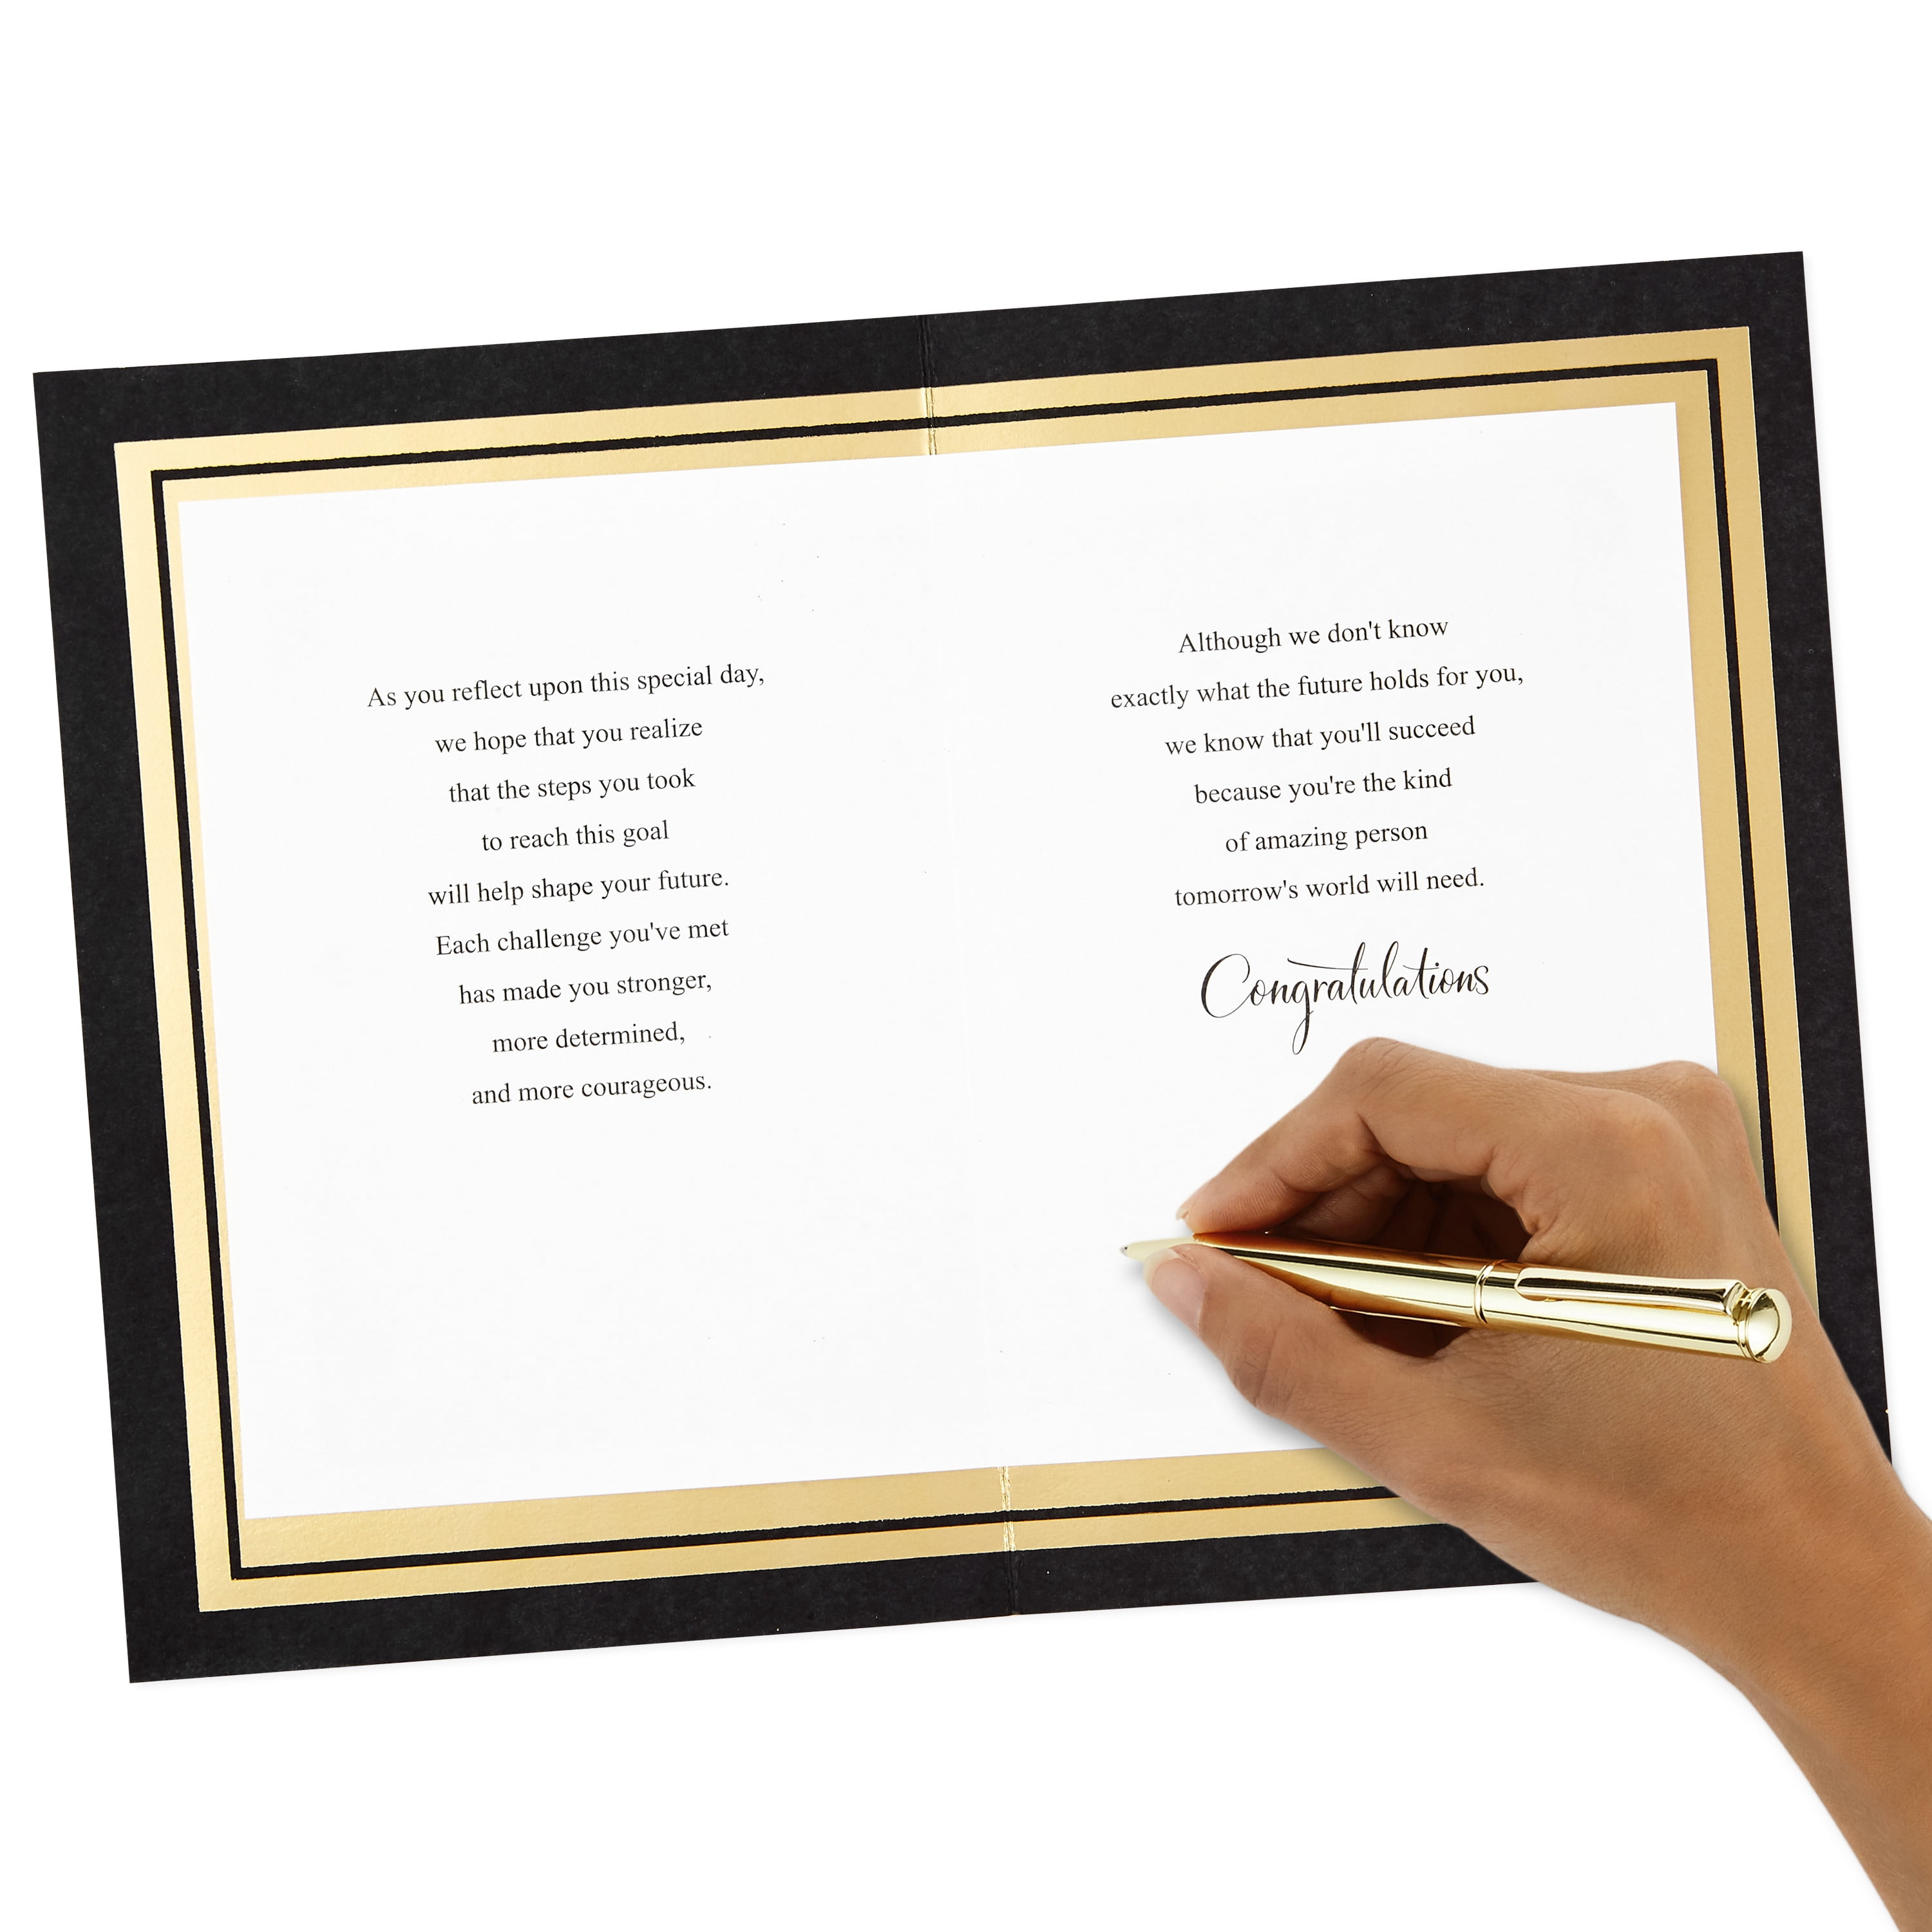 As you reflect upon this special day,
we hope that you realize
that the steps you took
to reach this goal
will help shape your future.
Each challenge you've met
has made you stronger,
more determined,
and more courageous.
Although we don't know
exactly what the future holds for you,
we know that you'll succeed
because you're the kind
of amazing person
tomorrow's world will need.
Congratulations